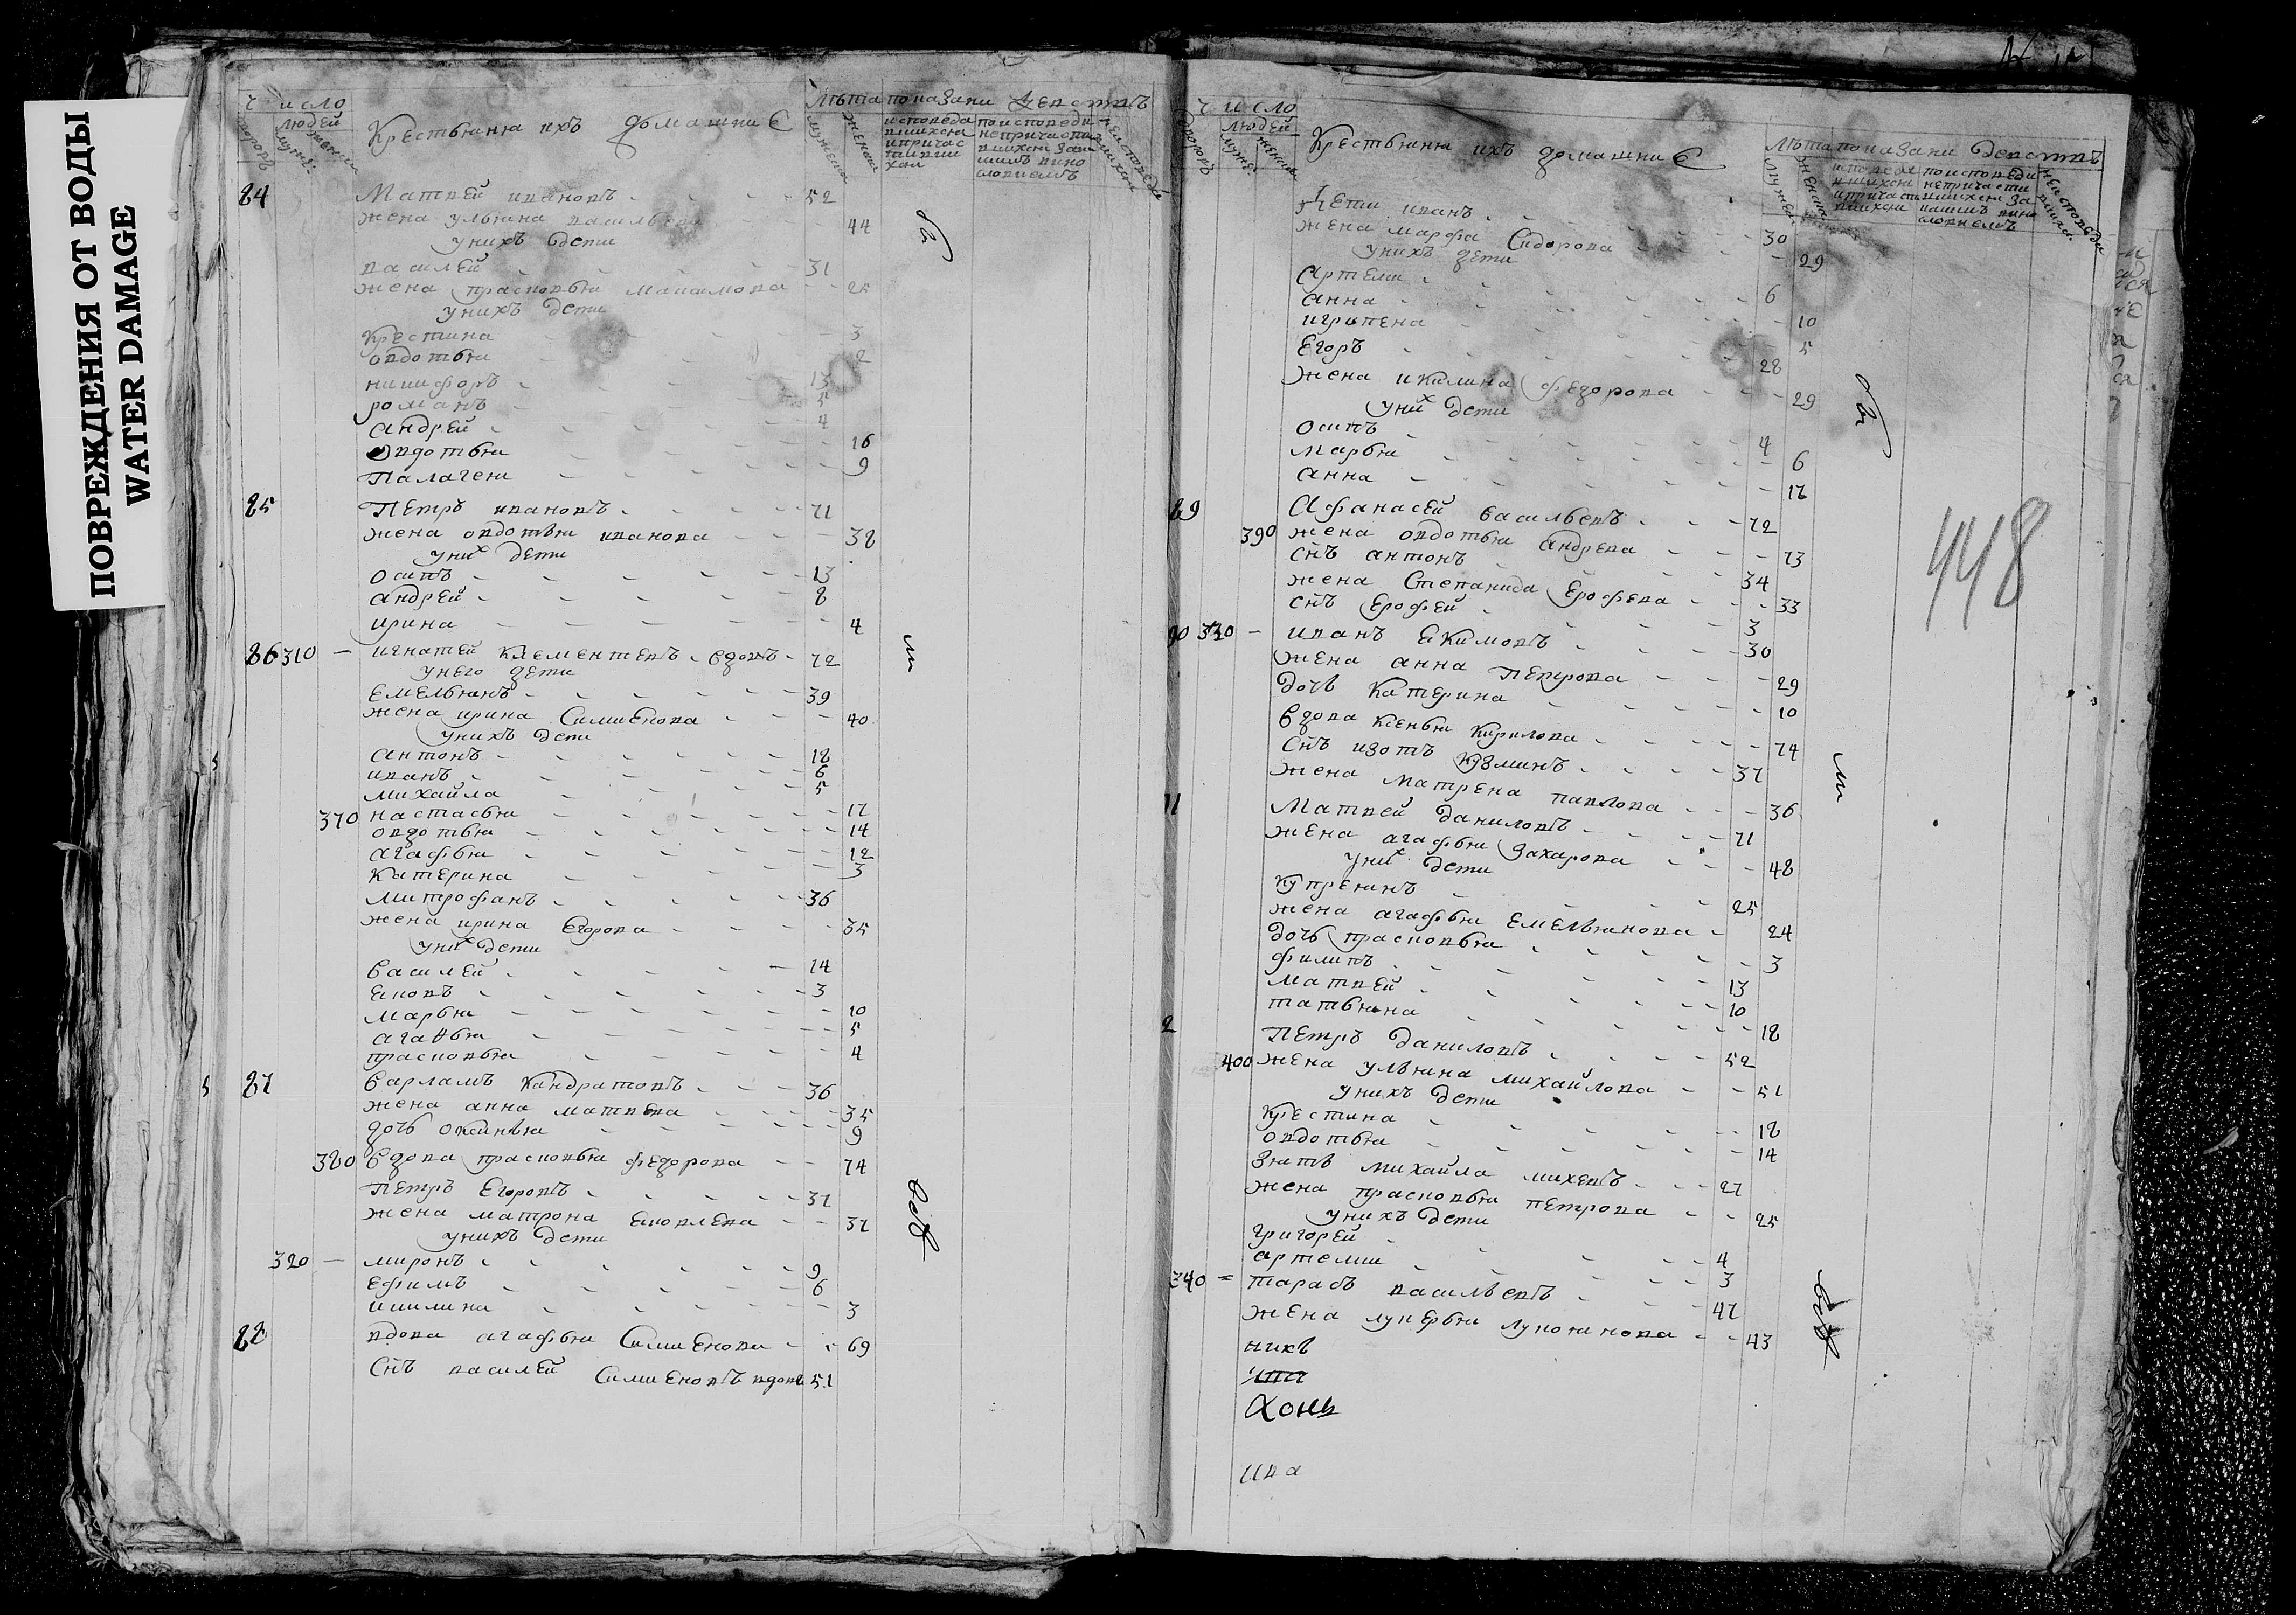 ПОВРЕЖДЕНИЯ ОТ ВОДЫ
WATER DAMAGE
число
людей
Крестьяня ихъ домашние
Лѣта показани действъ
84 Матвей ивановъ 52
жена ульяна васильева 44
у нихъ дети
василей 31
жена прасковья максимова 25
у нихъ дети
крестина 3
овдотья 2
никифоръ 13
романъ 5
андрей 4
овдотья 16
Палагея 9
85 Петръ ивановъ 71
жена овдотья иванова 38
у них дети
осипъ 13
андрей 8
ирина 4
86 310 — игнатей клементевъ вдовъ 72
у него дети
емельянъ 39
жена ирина Симионова 40
у нихъ дети
антонъ 18
иванъ 6
михайла 5
370 настасья 17
овдотья 14
агафья 12
катерина 3
митрофанъ 36
жена ирина Егорова 35
у них дети
василей 14
яковъ 3
марья 10
агафья 5
прасковья 4
87 варламъ кондратовъ 36
жена анна матвева 35
дочь оксинья 9
380 вдова прасковья федорова 74
Петръ Егоровъ 37
жена матрона яковлева 37
у нихъ дети
320 — миронъ 9
ефимъ 6
икилина 3
88 вдова агафья Симионова 69
снъ василей Симионовъ вдовъ 51
число
людей
Крестьяня ихъ домашние
Лѣта показани девствъ
Дети иванъ 30
жена марфа Сидорова 29
у нихъ дети
артеми 6
анна 10
игрыпена 5
Егоръ 28
жена икилина федорова 29
у них дети
осипъ 4
марья 6
анна 17
89 Афанасей васильевъ 72
390 жена овдотья андрева 73
снъ антонъ 34
жена Степанида Ерофева 33
снъ Ерофей 3
90 330 — иванъ якимовъ 30
жена анна петрова 29
дочь катерина 10
вдова ксенья кирилова 74
снъ изотъ кузминъ 37
жена матрена павлова 36
Матвей даниловъ 71
жена агафья захарова 48
у них дети
купреянъ 25
жена агафья Емельянова 24
дочь прасковья 3
филипъ 13
матвей 10
татьяна 18
2 Петръ даниловъ 52
400 жена ульяна михайлова 51
у нихъ дети
крестина 18
овдотья 14
зять михайла михевъ 27
жена прасковья петрова 25
у нихъ дети
григорей 4
артеми 3
340 = тарасъ васильевъ 47
жена лукерья лукоянова 43
448